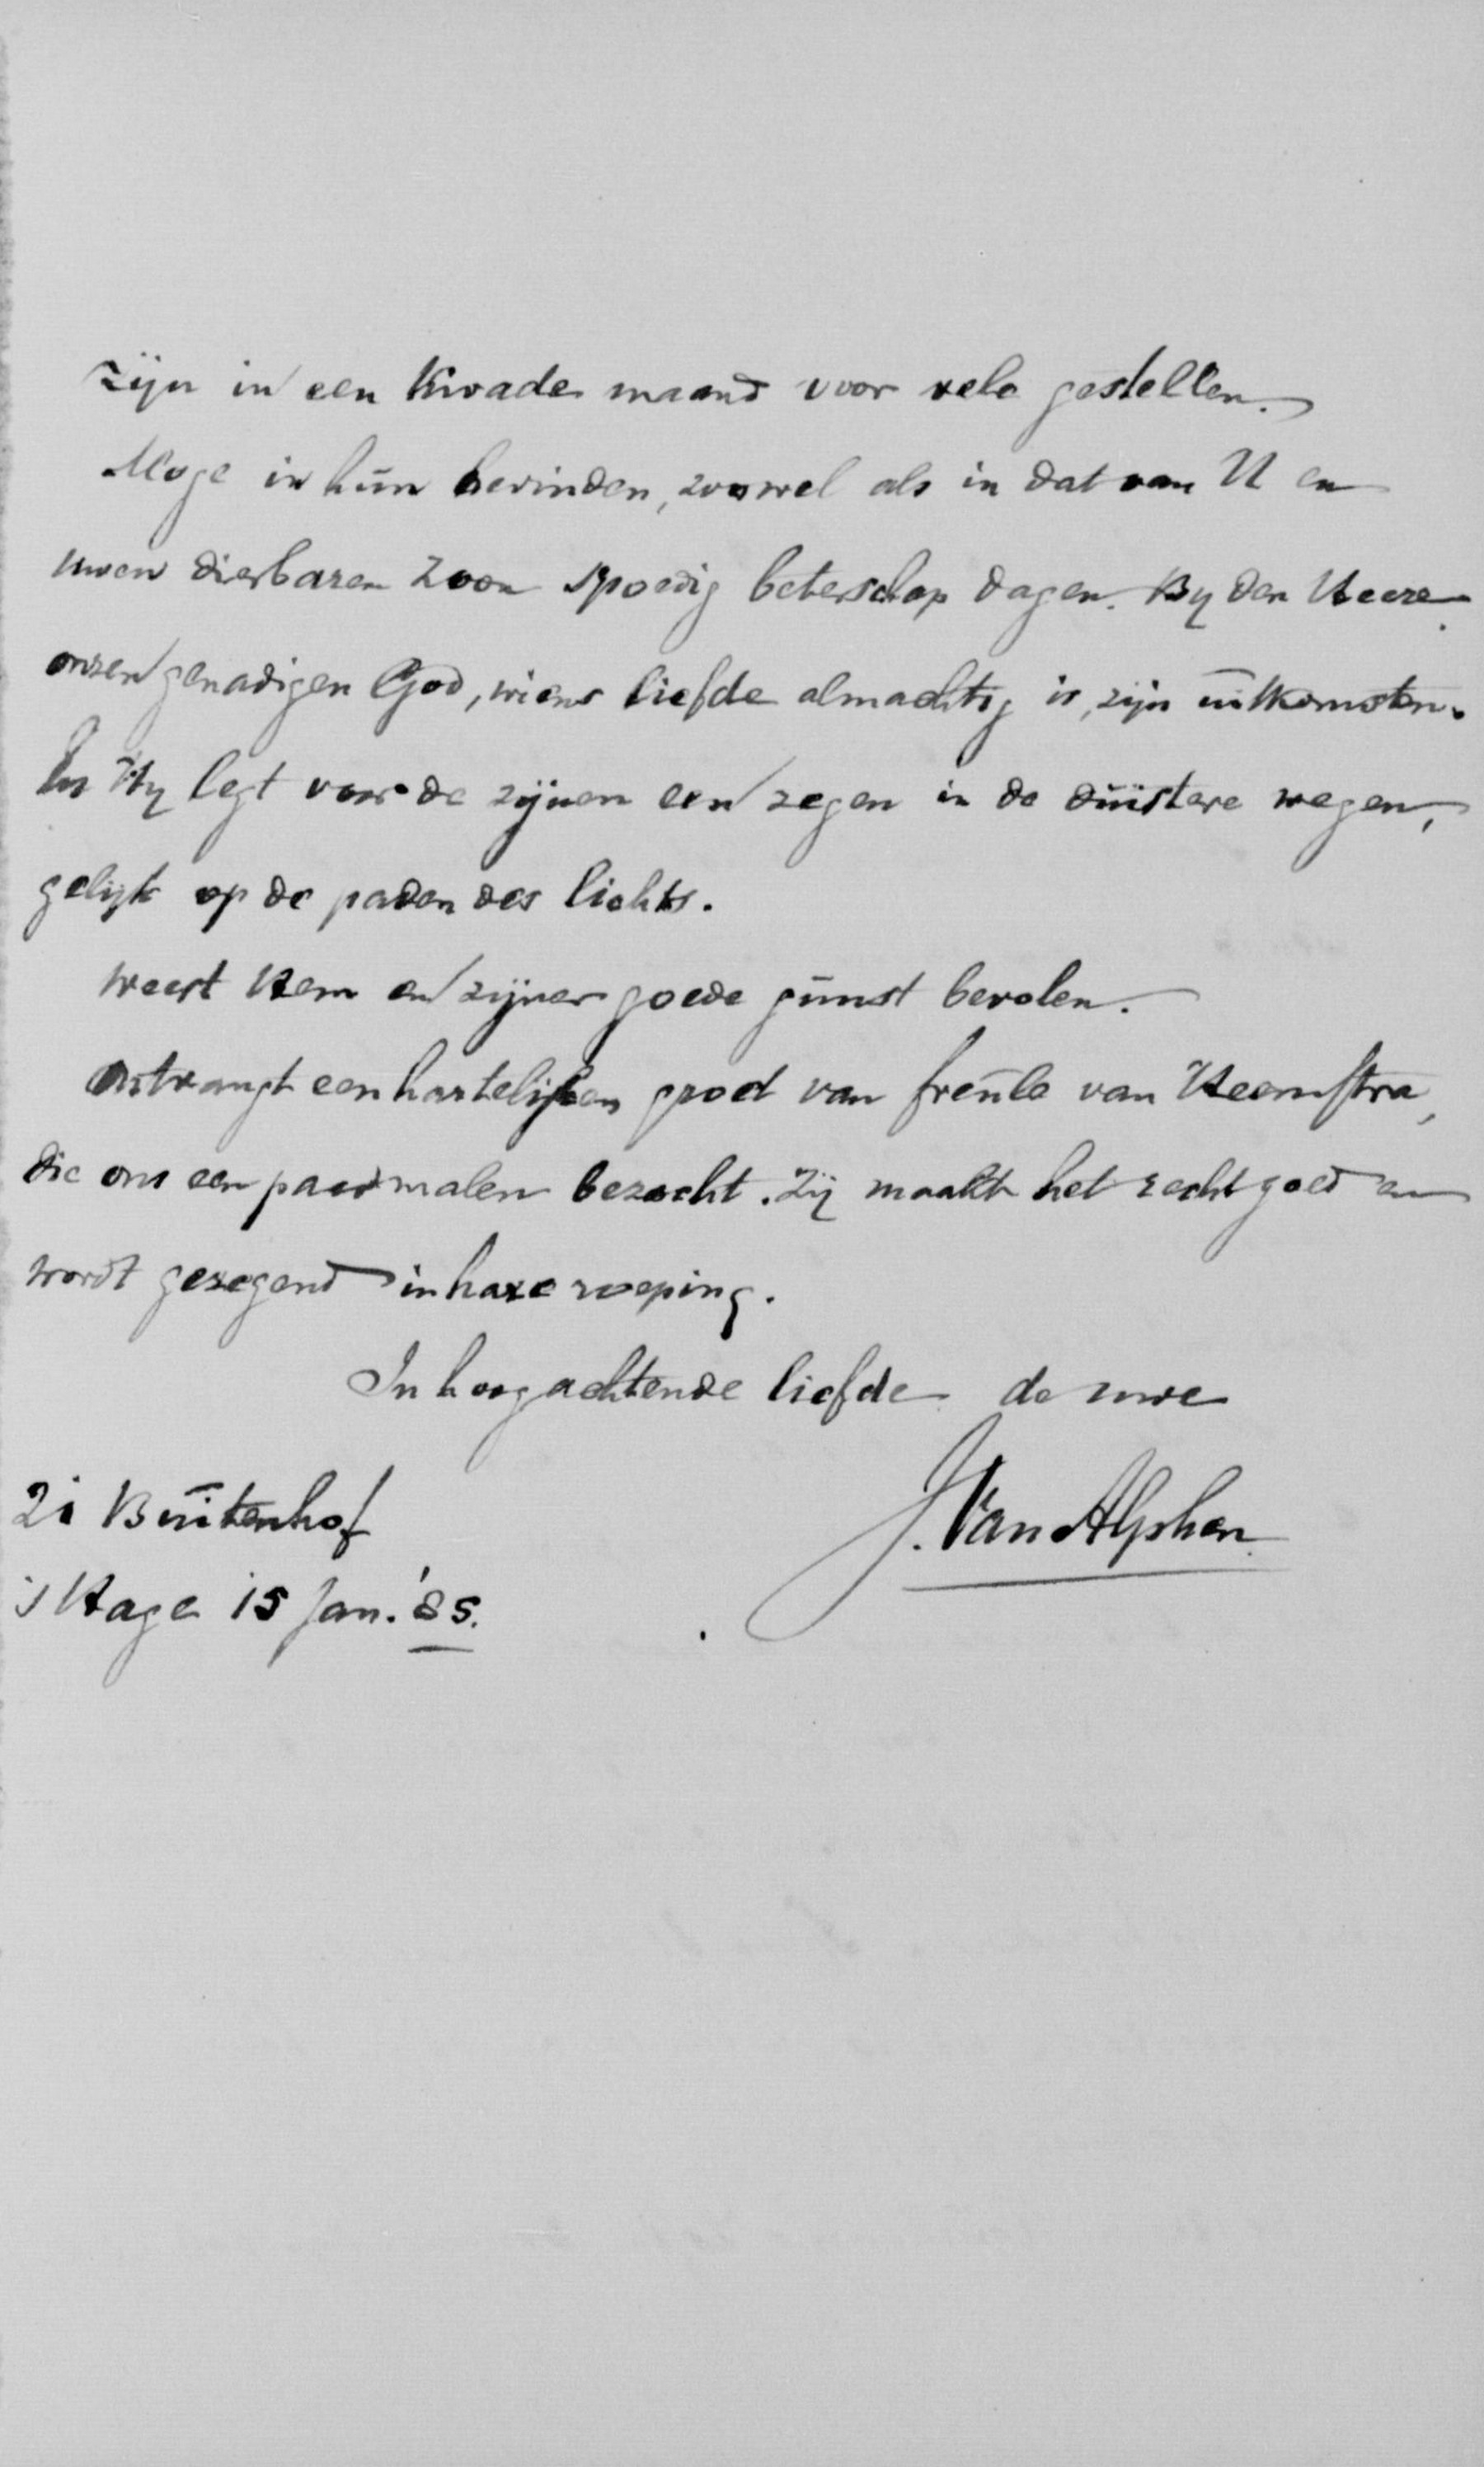 zijn in een kwade maand voor vele gestellen.
Moge in hun bevinden, zoowel als in dat van U en
uwen dierbaren zoon spoedig beterschap dagen. By den Heere
onzen genadigen God, wiens liefde almachtig is, zijn uitkomsten.
En Hy legt voor de zijnen een zegen in de duistere wegen,
gelijk op de paden des lichts.
Weest Hem en zijner goede gunst bevolen.
Ontvangt een hartelijken groet van freule van Heemstra,
die ons een paar malen bezocht. Zij maakt het recht goed en
wordt gezegend in hare roeping.
In hoogachtende liefde de uwe
J. Van Alphen
21 Buitenhof
's Hage 15 Jan. '85.